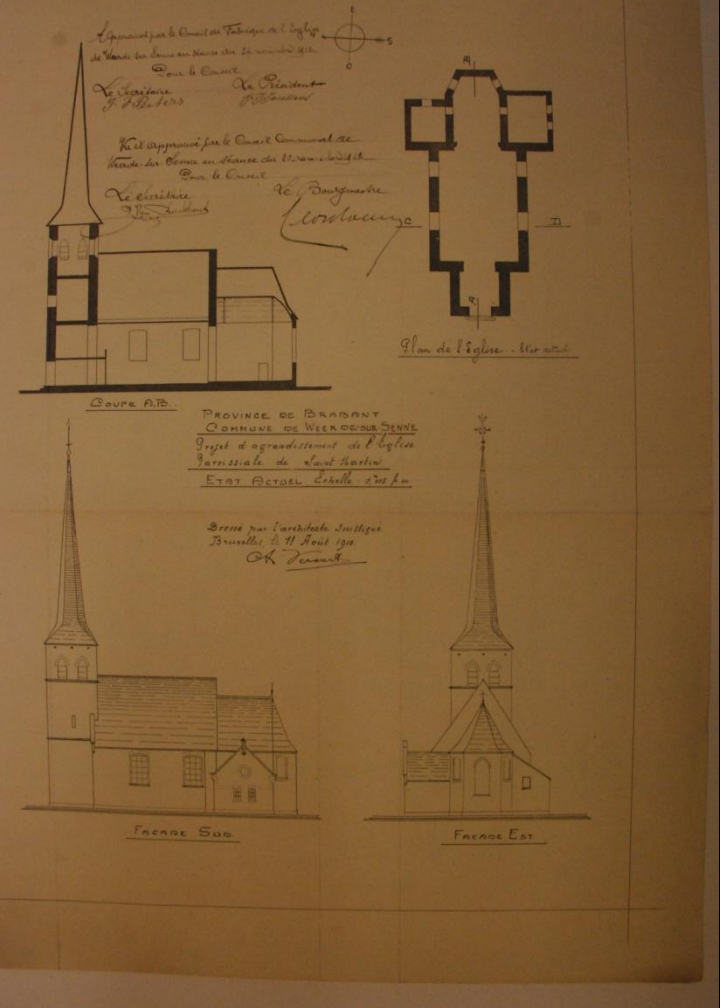 Approuvé par le Conseil de Fabrique de l'Eglise
de Weerde sur Senne en séance du 24 novembre
Pour le Conseil
Le Secrétaire Le Président
Vu et approuvé par le Conseil Communal de
Weerde-sur Senne en séance du
Pour le Conseil
Le Secrétaire Le Bourgmestre
E
S
O
A
C D
Plan de l'Eglise - Etat actuel
Coupe A.B.
Province de Brabant
Commune de Weerde-sur Senne
Projet d'agrandissement de l'Eglise
Paroissiale de Saint Martin
Etat Actuel Echelle
Dressé par l'architecte soussigné
Bruxelles le 11 Août 1910.
Façade Sud.
Façade Est